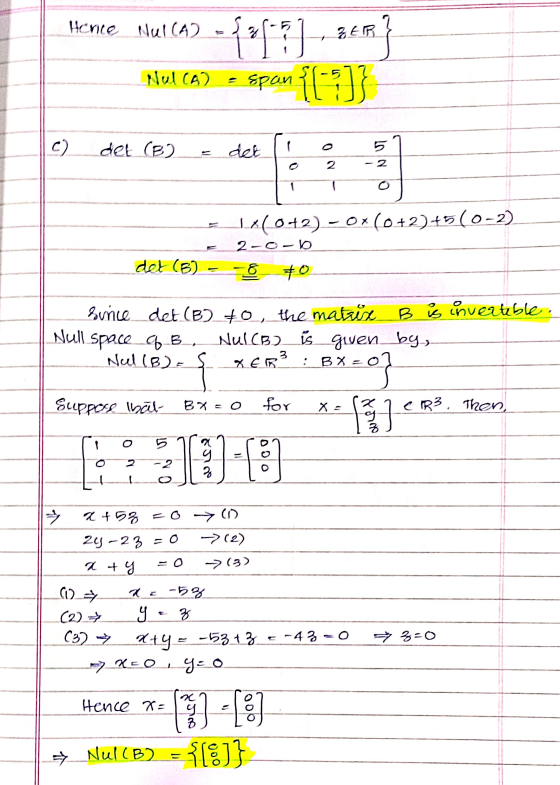 Hence Nul(A) = { z [-5 1 1] , z ∈ ℝ }
Nul(A) = span {[-5 1 1]}
c) det (B) = det [1 0 5
0 2 -2
1 1 0]
= 1×(0+2) - 0×(0+2)+5(0-2)
= 2-0-10
det(B) = -8 ≠0
Since det(B) ≠0, the matrix B is invertible.
Null space of B, Nul(B) is given by,
Nul(B) = { x ∈ ℝ³ : BX = 0}
Suppose that BX = 0 for X = [x y z] ∈ ℝ³. Then,
[1 0 5
0 2 -2
1 1 0] [x y z] = [0 0 0]
⇒ x + 5z = 0 → (1)
2y - 2z = 0 → (2)
x + y = 0 → (3)
(1) ⇒ x = -5z
(2) ⇒ y = z
(3) ⇒ x+y = -5z+z = -4z = 0 ⇒ z=0
⇒ x=0, y=0
Hence X= [x y z] = [0 0 0]
⇒ Nul(B) = {[0 0 0]}